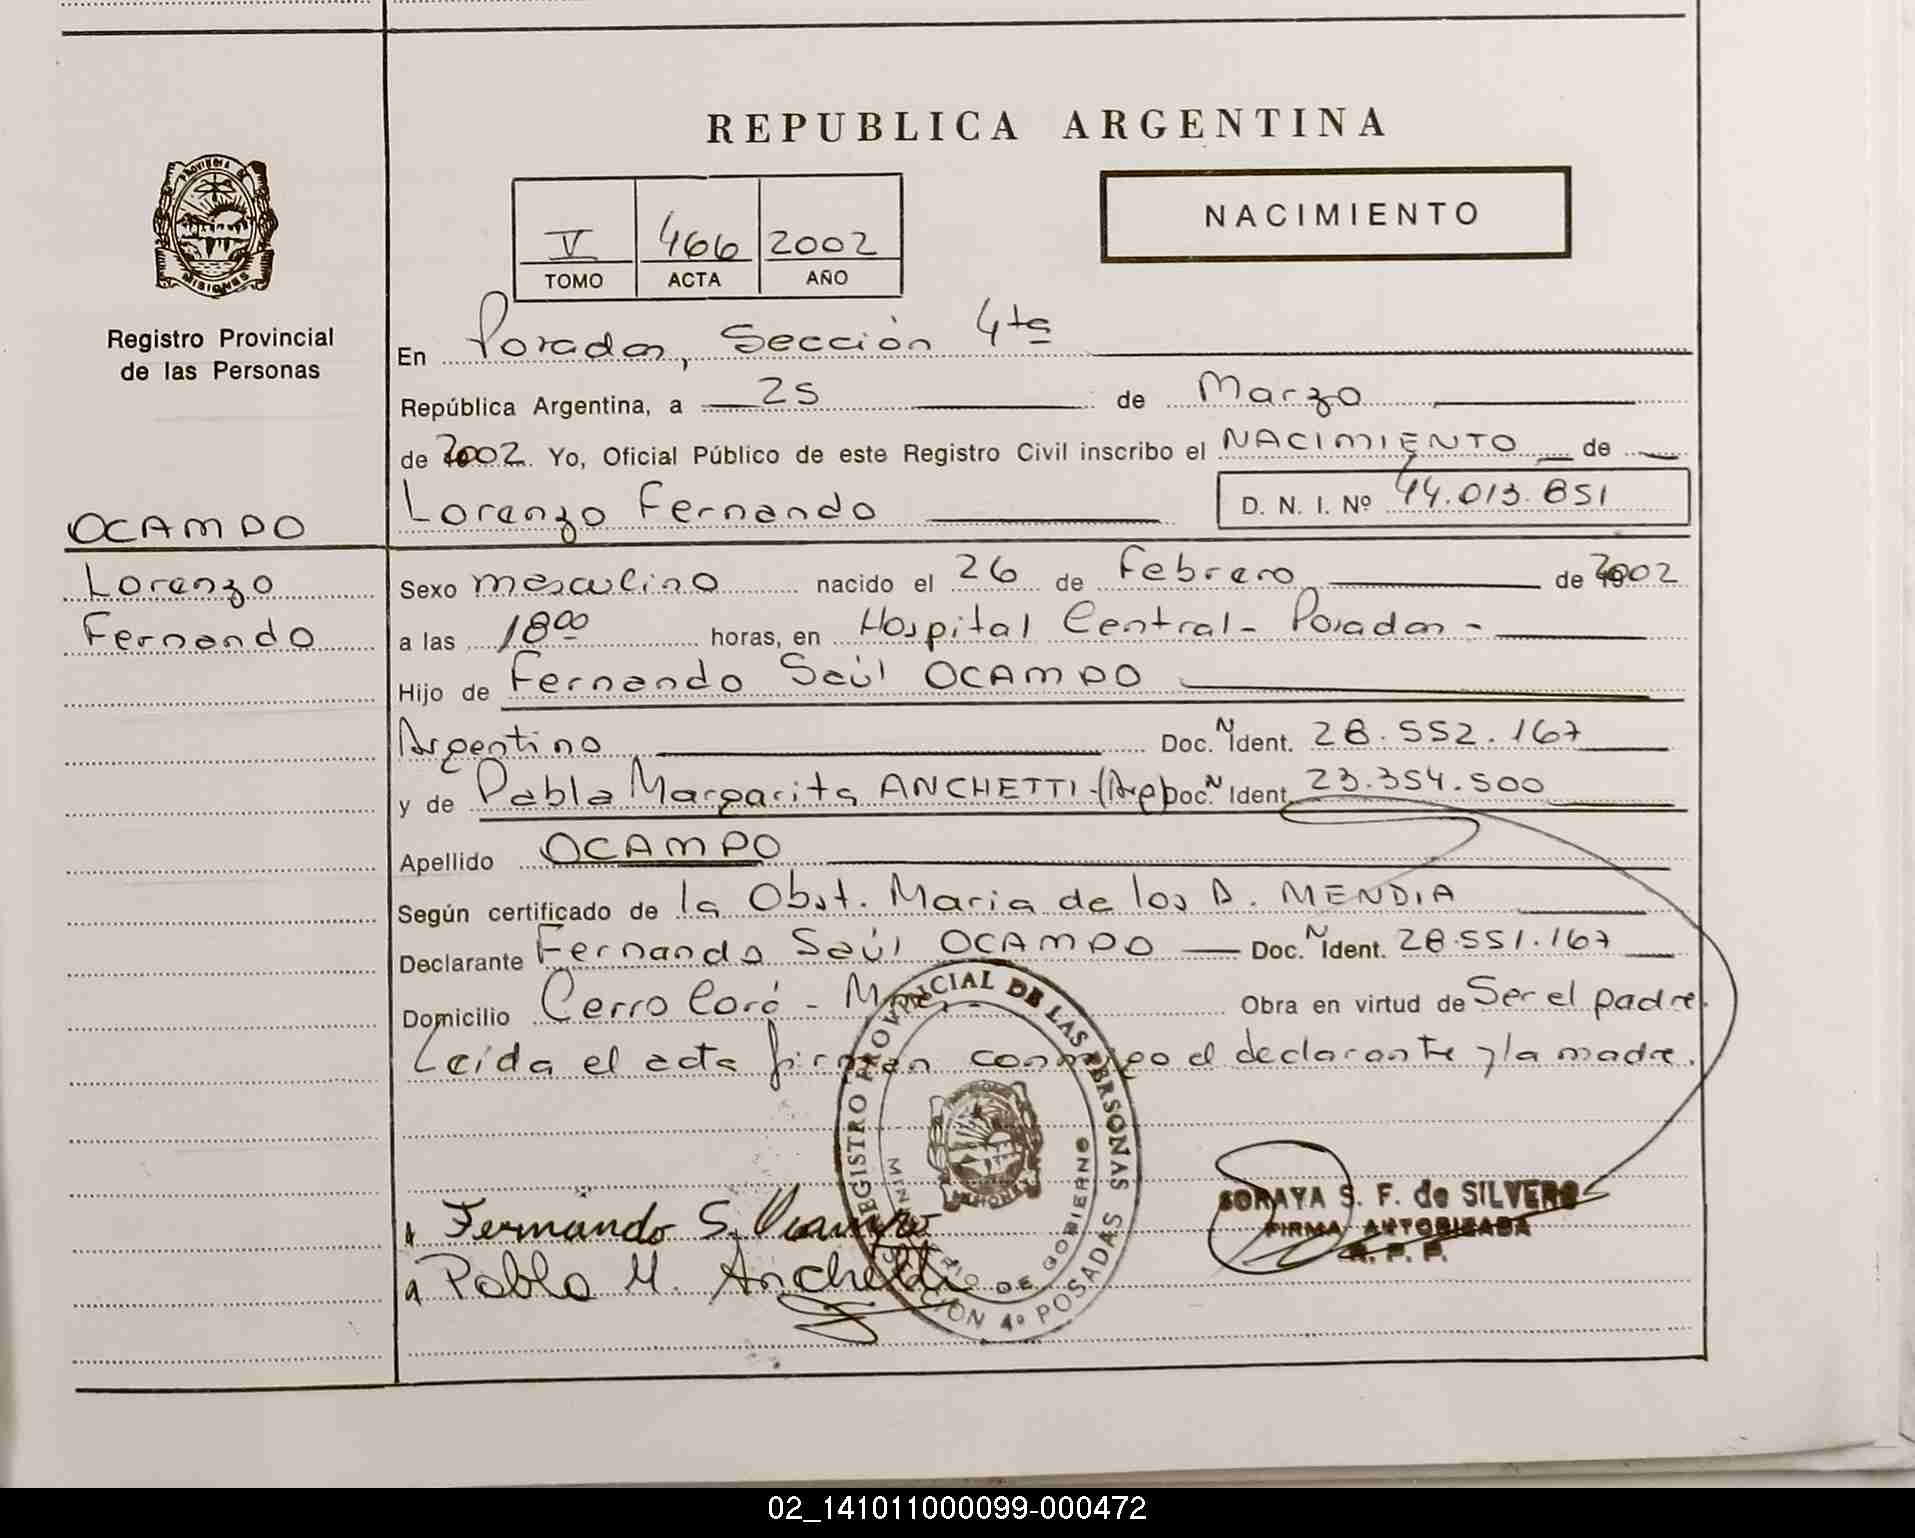 REPUBLICA ARGENTINA
PROVINCIA DE MISIONES
Registro Provincial
de las Personas
V 466 2002
TOMO ACTA AÑO
NACIMIENTO
En Posadas, Sección 4ta
República Argentina, a 25 de Marzo
de 2002. Yo, Oficial Público de este Registro Civil inscribo el NACIMIENTO de
Lorenzo Fernando D. N. I. Nº 44.013.851
OCAMPO
Lorenzo
Fernando
Sexo masculino nacido el 26 de Febrero de 2002
a las 18⁰⁰ horas, en Hospital Central - Posadas -
Hijo de Fernando Saúl OCAMPO
Argentino Doc. N Ident. 28.552.167
y de Pabla Margarita ANCHETTI - (Arg) Doc. N Ident. 23.354.500
Apellido OCAMPO
Según certificado de la Obst. Maria de los A. MENDIA
Declarante Fernando Saúl OCAMPO Doc. N Ident. 28.551.167
Domicilio Cerro Corá - Mnes. - Obra en virtud de Ser el padre.
Leída el acta firman conmigo el declarante y la madre.
REGISTRO PROVINCIAL DE LAS PERSONAS
MINISTERIO DE GOBIERNO
SECCION 4º POSADAS
MISIONES
Fernando S. Ocampo
Pabla M. Anchetti
SORAYA S. F. de SILVERO
FIRMA AUTORIZADA
R. P. P.
02_141011000099-000472